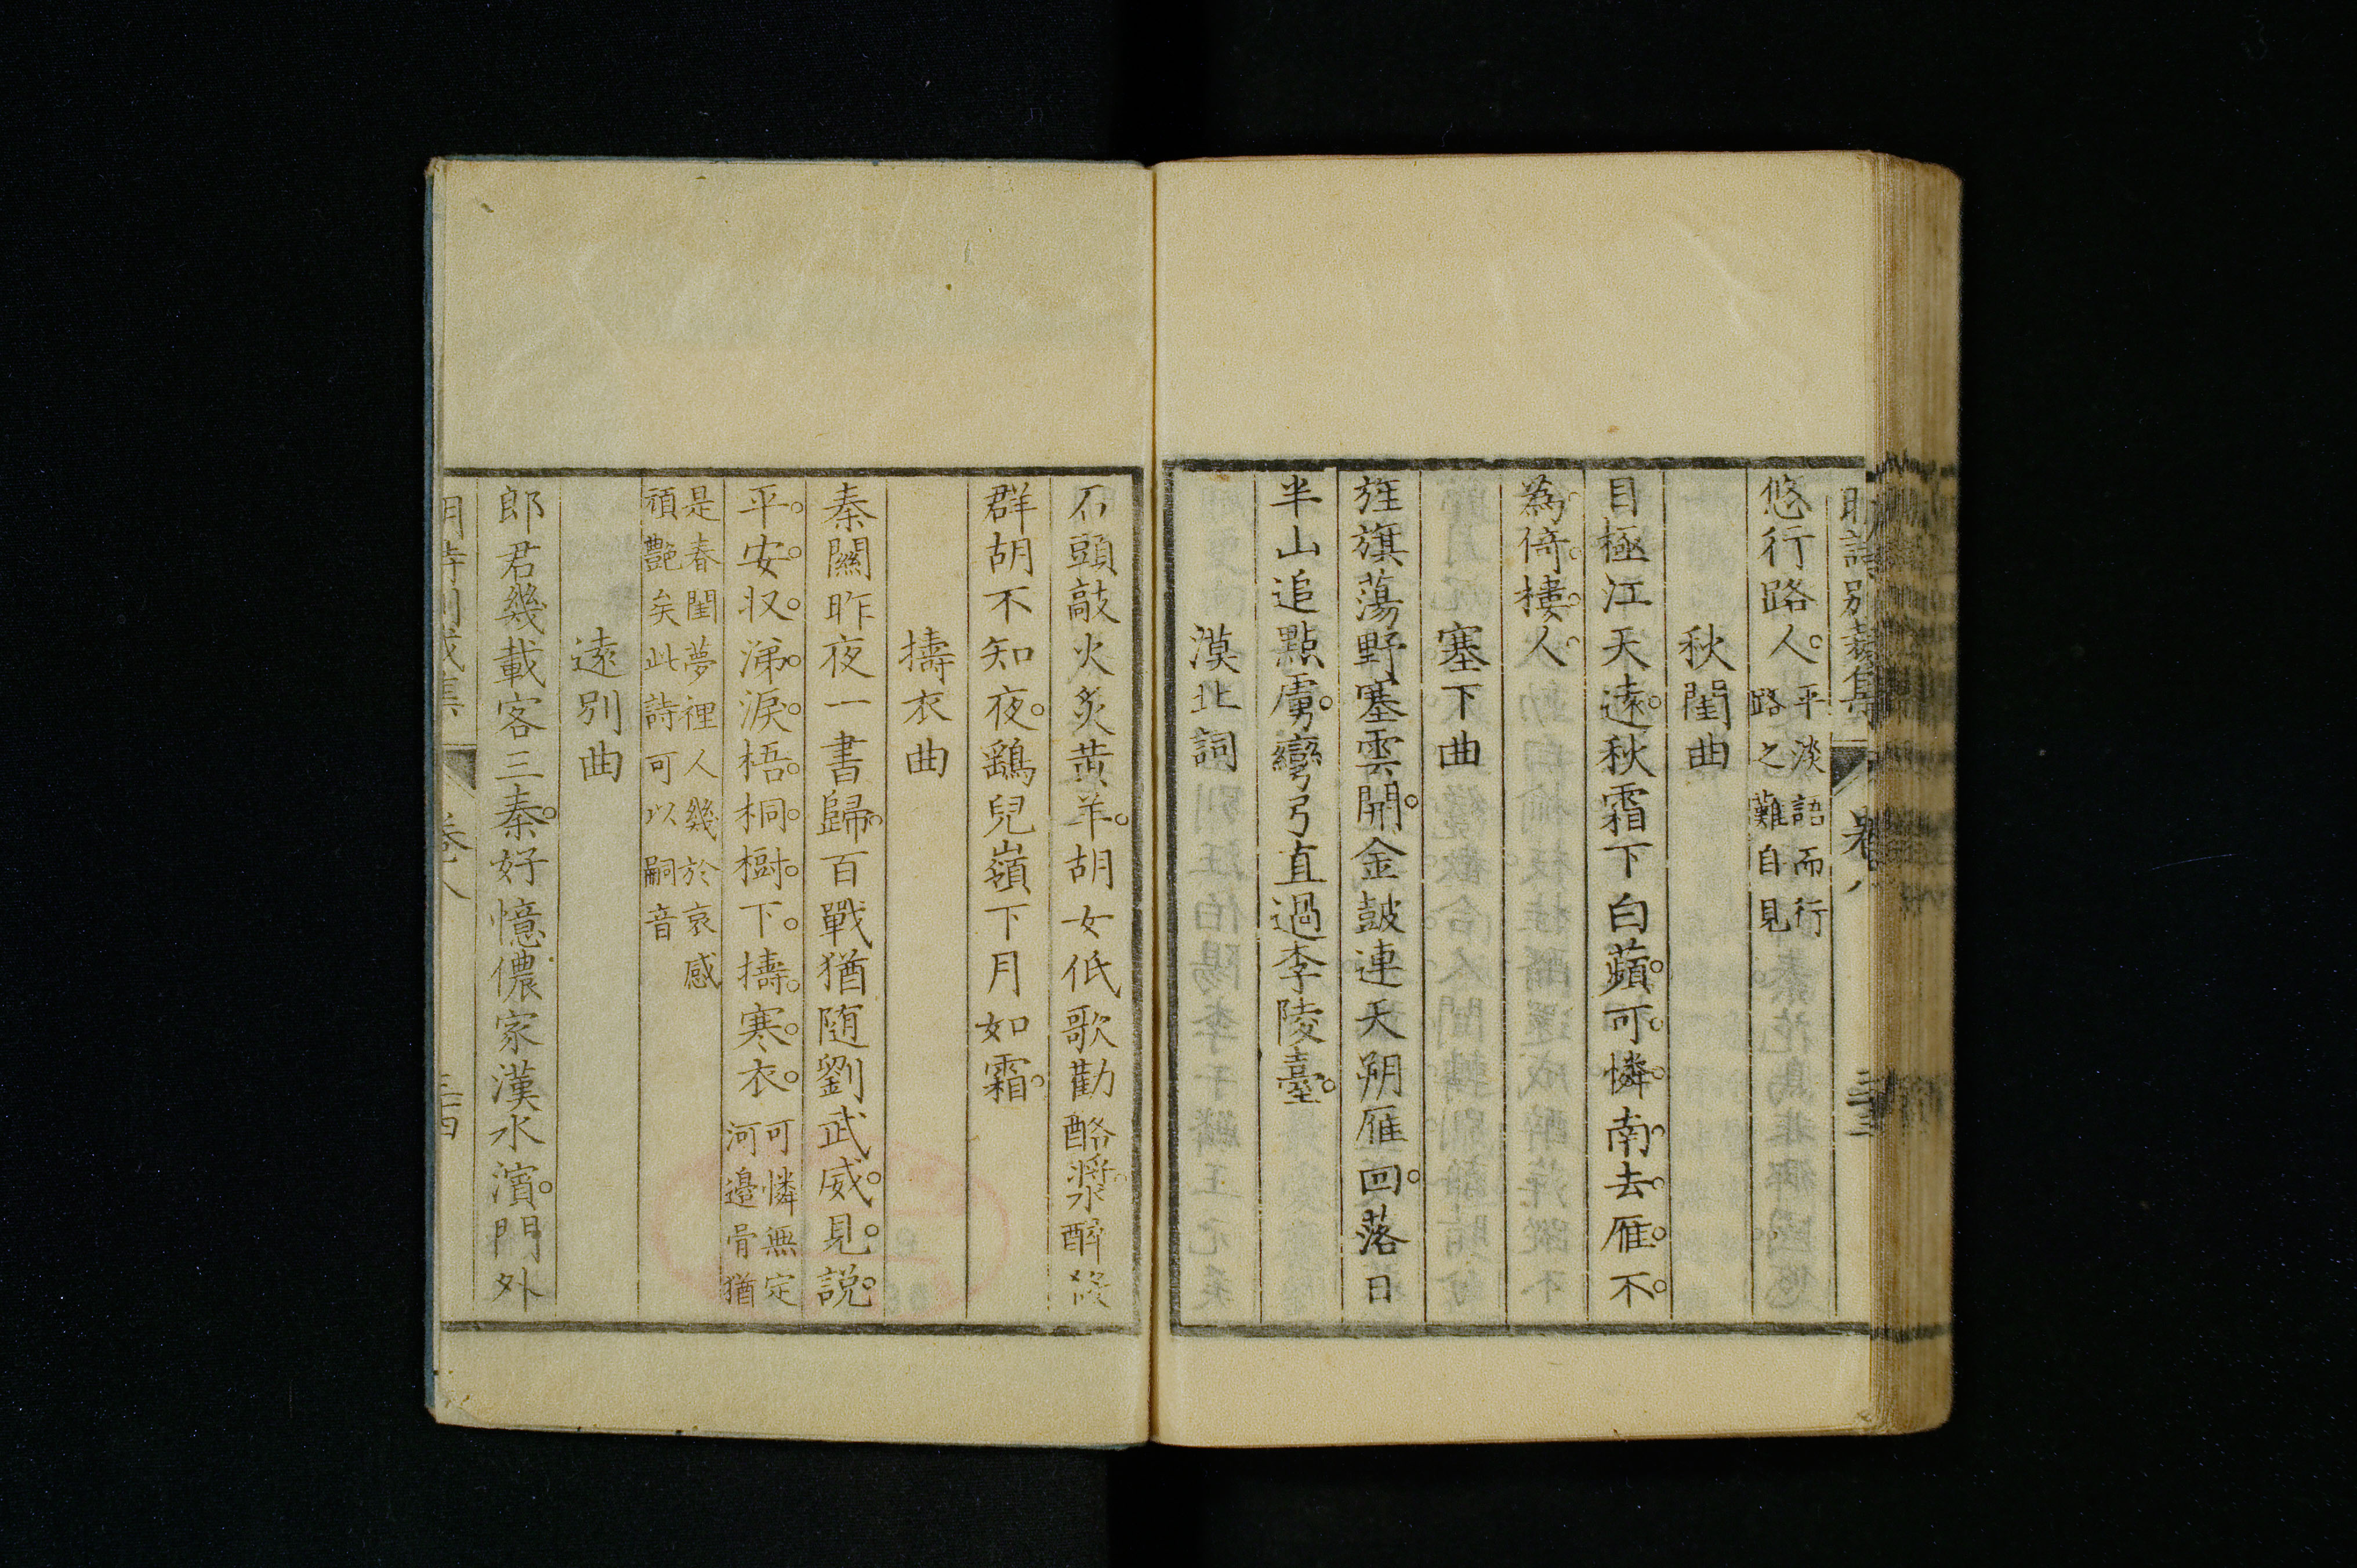 明詩別裁集 卷八 三三
悠行路人。平淡語而行
路之難自見
秋閨曲
目極江天遠。秋霜下白蘋。可憐南去雁。不
為倚樓人。
塞下曲
旌旗蕩野塞雲開。金鼓連天朔雁回。落日
半山追點虜。彎弓直過李陵臺。
漠北詞
石頭敲火炙黃羊。胡女低歌勸酪漿。醉殺
群胡不知夜。鷂兒嶺下月如霜。
擣衣曲
秦關昨夜一書歸。百戰猶隨劉武威。見。說。
平。安。収。涕。淚。梧。桐。樹。下。擣。寒。衣。可憐無定
河邊骨猶
是春閨夢裡人幾於哀感
頑艷矣此詩可以嗣音
遠別曲
郎君幾載客三秦。好憶儂家漢水濱。門外
明詩別裁集 卷八 三四